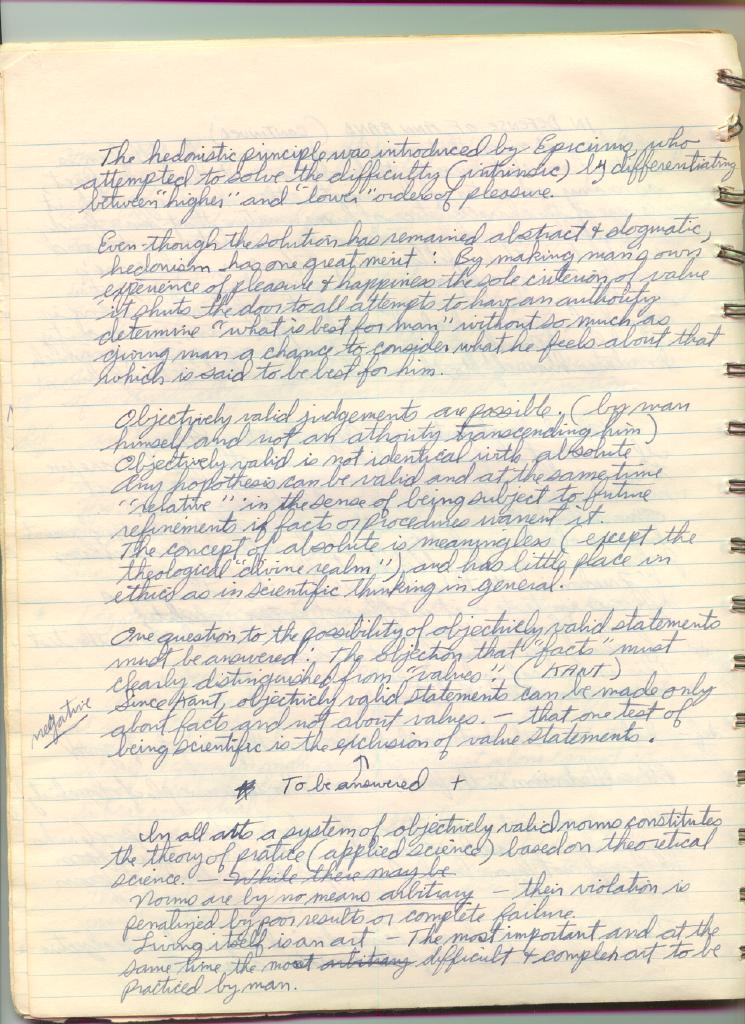 The hedonistic principle was introduced by Epicurus, who
attempted to solve the difficulty (intrinsic) by differentiating
between "higher" and "lower" orders of pleasure.
Even though the solution has remained abstract & dogmatic,
hedonism has one great merit: By making man's own
experience of pleasure & happiness the sole criterion of value
it shuts the door to all attempts to have an authority
determine "what is best for man" without so much as
giving man a chance to consider what he feels about that
which is said to be best for him.
Objectively valid judgements are possible, (by man
himself and not an athority transcending him)
Objectively valid is not identical with absolute
Any hypothesis can be valid and at the same time
"relative" in the sense of being subject to future
refinements if facts or procedures warrent it.
The concept of absolute is meaningless (except the
theological "divine realm"), and has little place in
ethics as in scientific thinking in general.
One question to the possibility of objectively valid statements
must be answered: The objection that "facts" must
clearly distinguished from "values". (KANT)
Since Kant, objectively valid statements can be made only
negative about facts and not about values. — that one test of
being scientific is the exclusion of value statements.
To be answered +
In all arts a system of objectively valid norms constitutes
the theory of pratice (applied science) based on theoretical
science. — While there may be
Norms are by no means arbitrary — their violation is
penalized by poor results or complete failure.
Living itself is an art — The most important and at the
same time, the most arbitrary difficult & complex art to be
practiced by man.